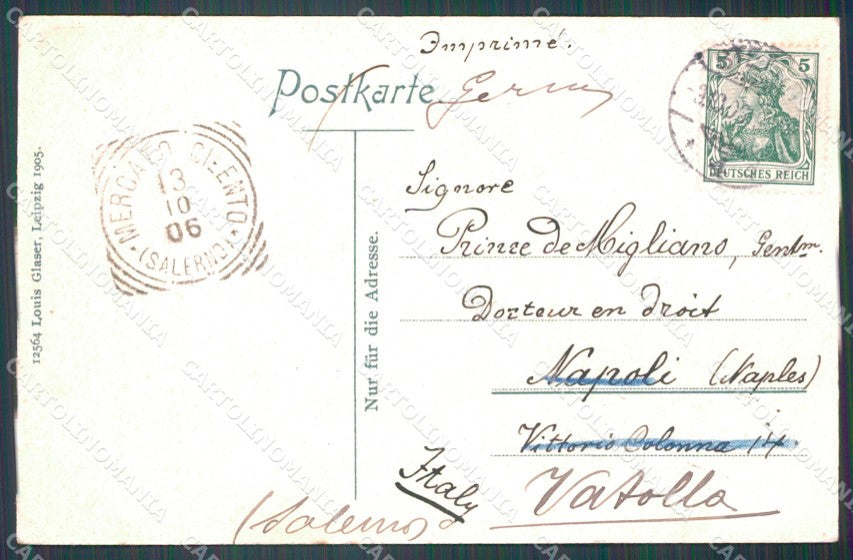 Imprimé.
Postkarte
5 5
DEUTSCHES REICH
MERCATO CILENTO
(SALERNO)
13
10
06
Signore
Prince de Migliano, Gentm.
Docteur en droit
Napoli (Naples)
Vittorio Colonna 14
Italy
Vatolla
(Salerno)
Nur für die Adresse.
12564 Louis Glaser, Leipzig 1905.
CARTOLINOMANIA